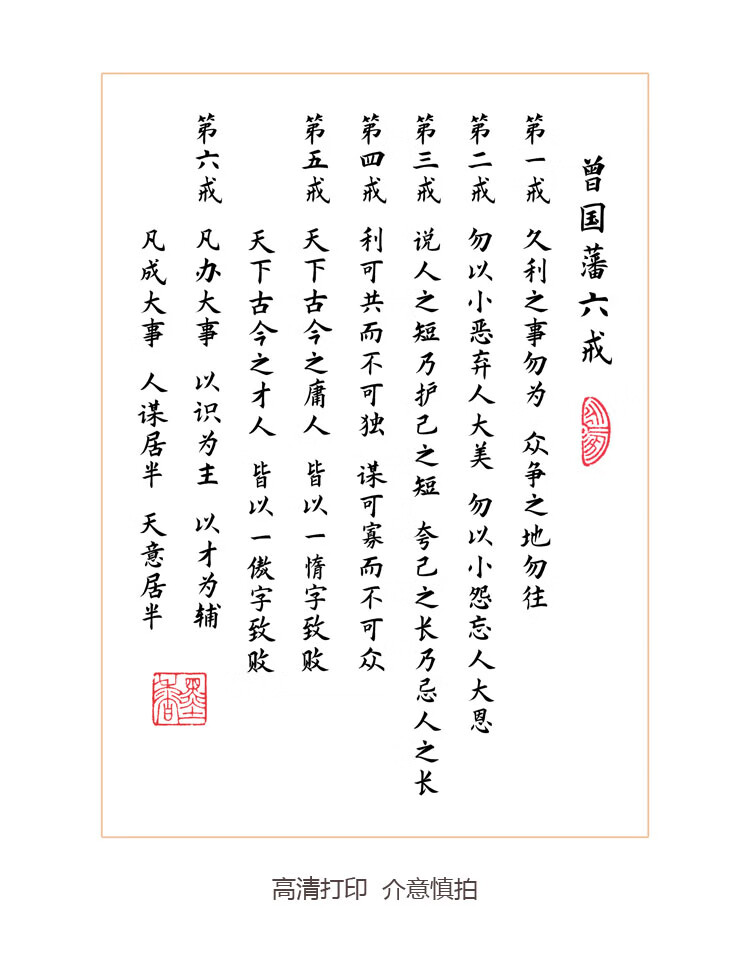 曾国藩六戒
第一戒 久利之事勿为 众争之地勿往
第二戒 勿以小恶弃人大美 勿以小怨忘人大恩
第三戒 说人之短乃护己之短 夸己之长乃忌人之长
第四戒 利可共而不可独 谋可寡而不可众
第五戒 天下古今之庸人 皆以一惰字致败
天下古今之才人 皆以一傲字致败
第六戒 凡办大事 以识为主 以才为辅
凡成大事 人谋居半 天意居半
墨香
高清打印 介意慎拍